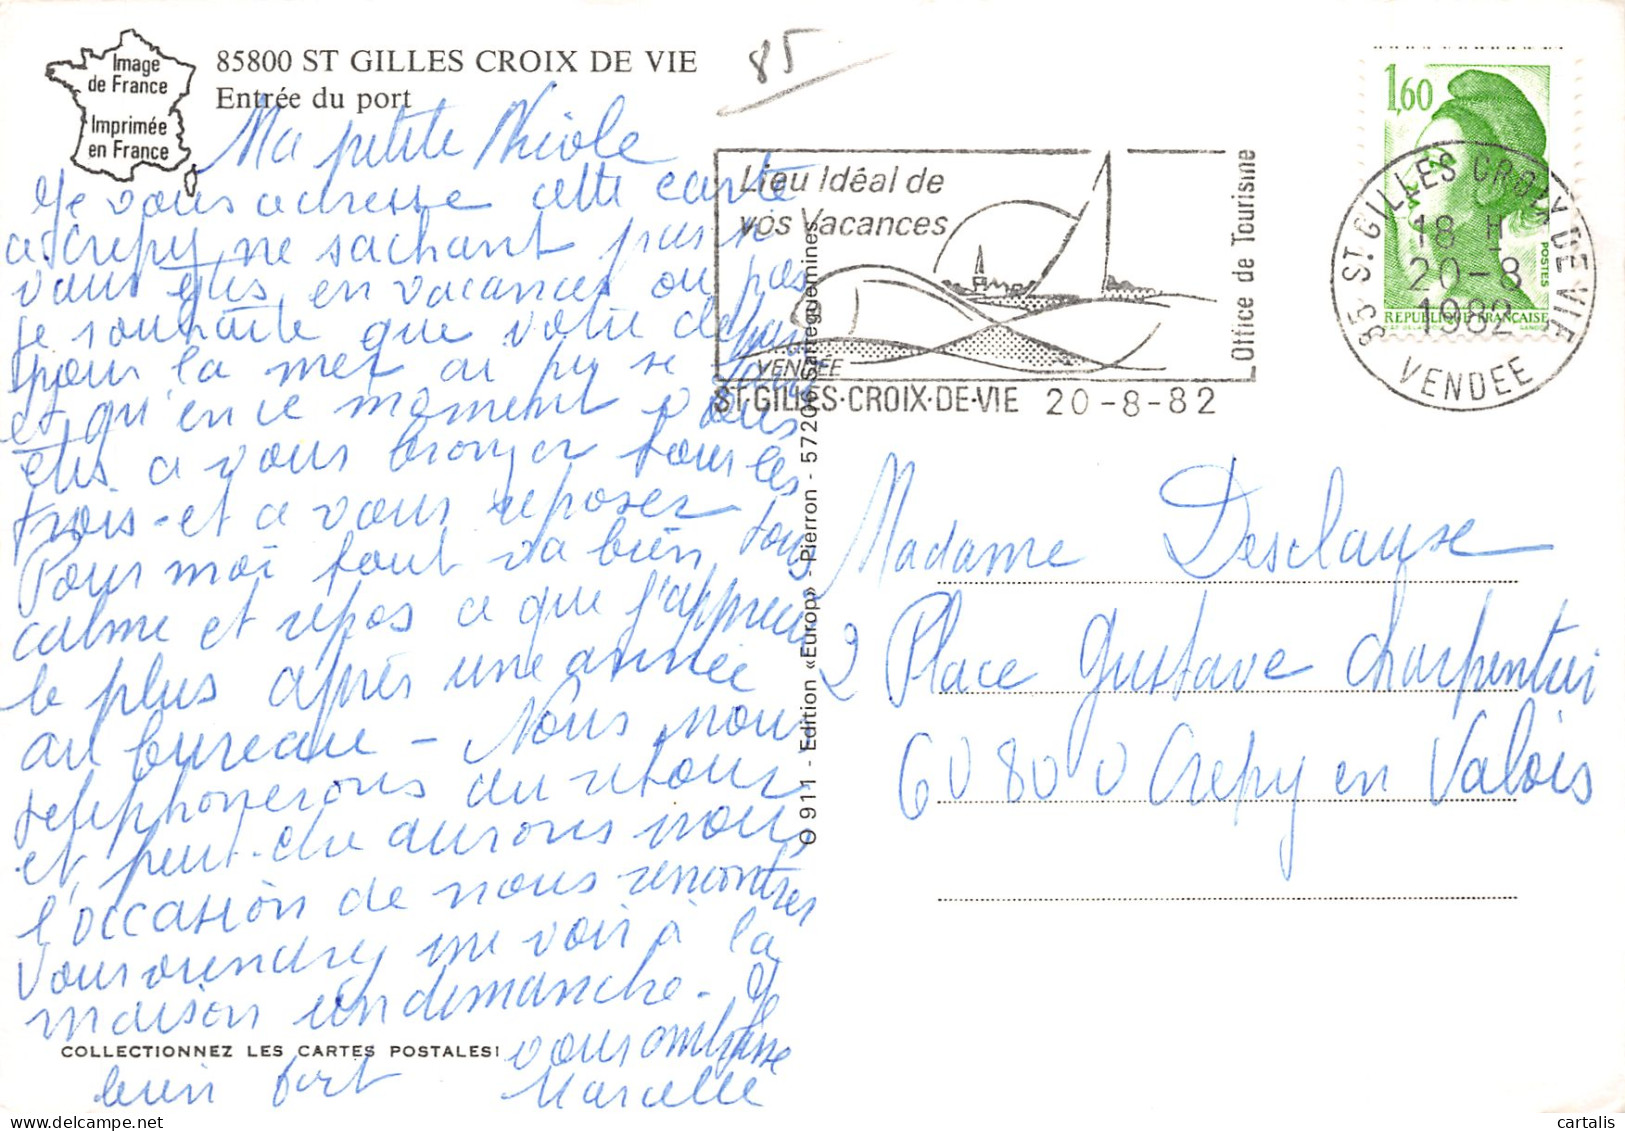 Image
de France
Imprimée
en France
85800 ST GILLES CROIX DE VIE
Entrée du port
85
Ma petite Nicole
Je vous adresse cette carte
a Crepy ne sachant pas si
vous êtes en vacances ou pas
je souhaite que votre départ
pour la mer ai pu se faire
et qu'en ce moment vous
êtes a vous bronzer tous les
trois - et a vous reposer
Pour moi tout va bien tous
calme et repos ce que j'apprecie
le plus après une année
au bureau - Nous nous
telephonerons au retour
et peut-etre aurons nous
l'occasion de nous rencontrer
Vous viendrez me voir à la
maison un dimanche - Je
vous embrasse
bien fort Marcelle
COLLECTIONNEZ LES CARTES POSTALES!
O 911 - Edition «Europ» - Pierron - 57206 Sarreguemines
Lieu Idéal de
vos Vacances
VENDEE
Office de Tourisme
ST·GILLES·CROIX·DE·VIE 20-8-82
1,60
POSTES
REPUBLIQUE FRANÇAISE
85 ST GILLES CROIX DE VIE
18 H
20-8
1982
VENDEE
Madame Desclause
2 Place Gustave Charpentier
60800 Crepy en Valois
cartalis